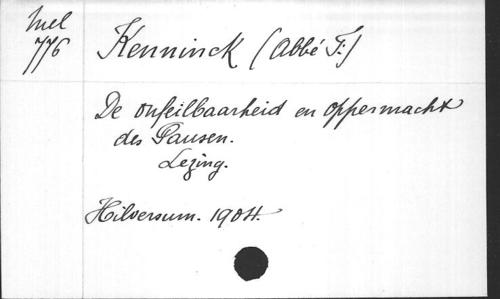 Mel
776
Kenninck (Abbé F:)
De onfeilbaarheid en oppermacht
des Pausen.
Lezing.
Hilversum. 1904.